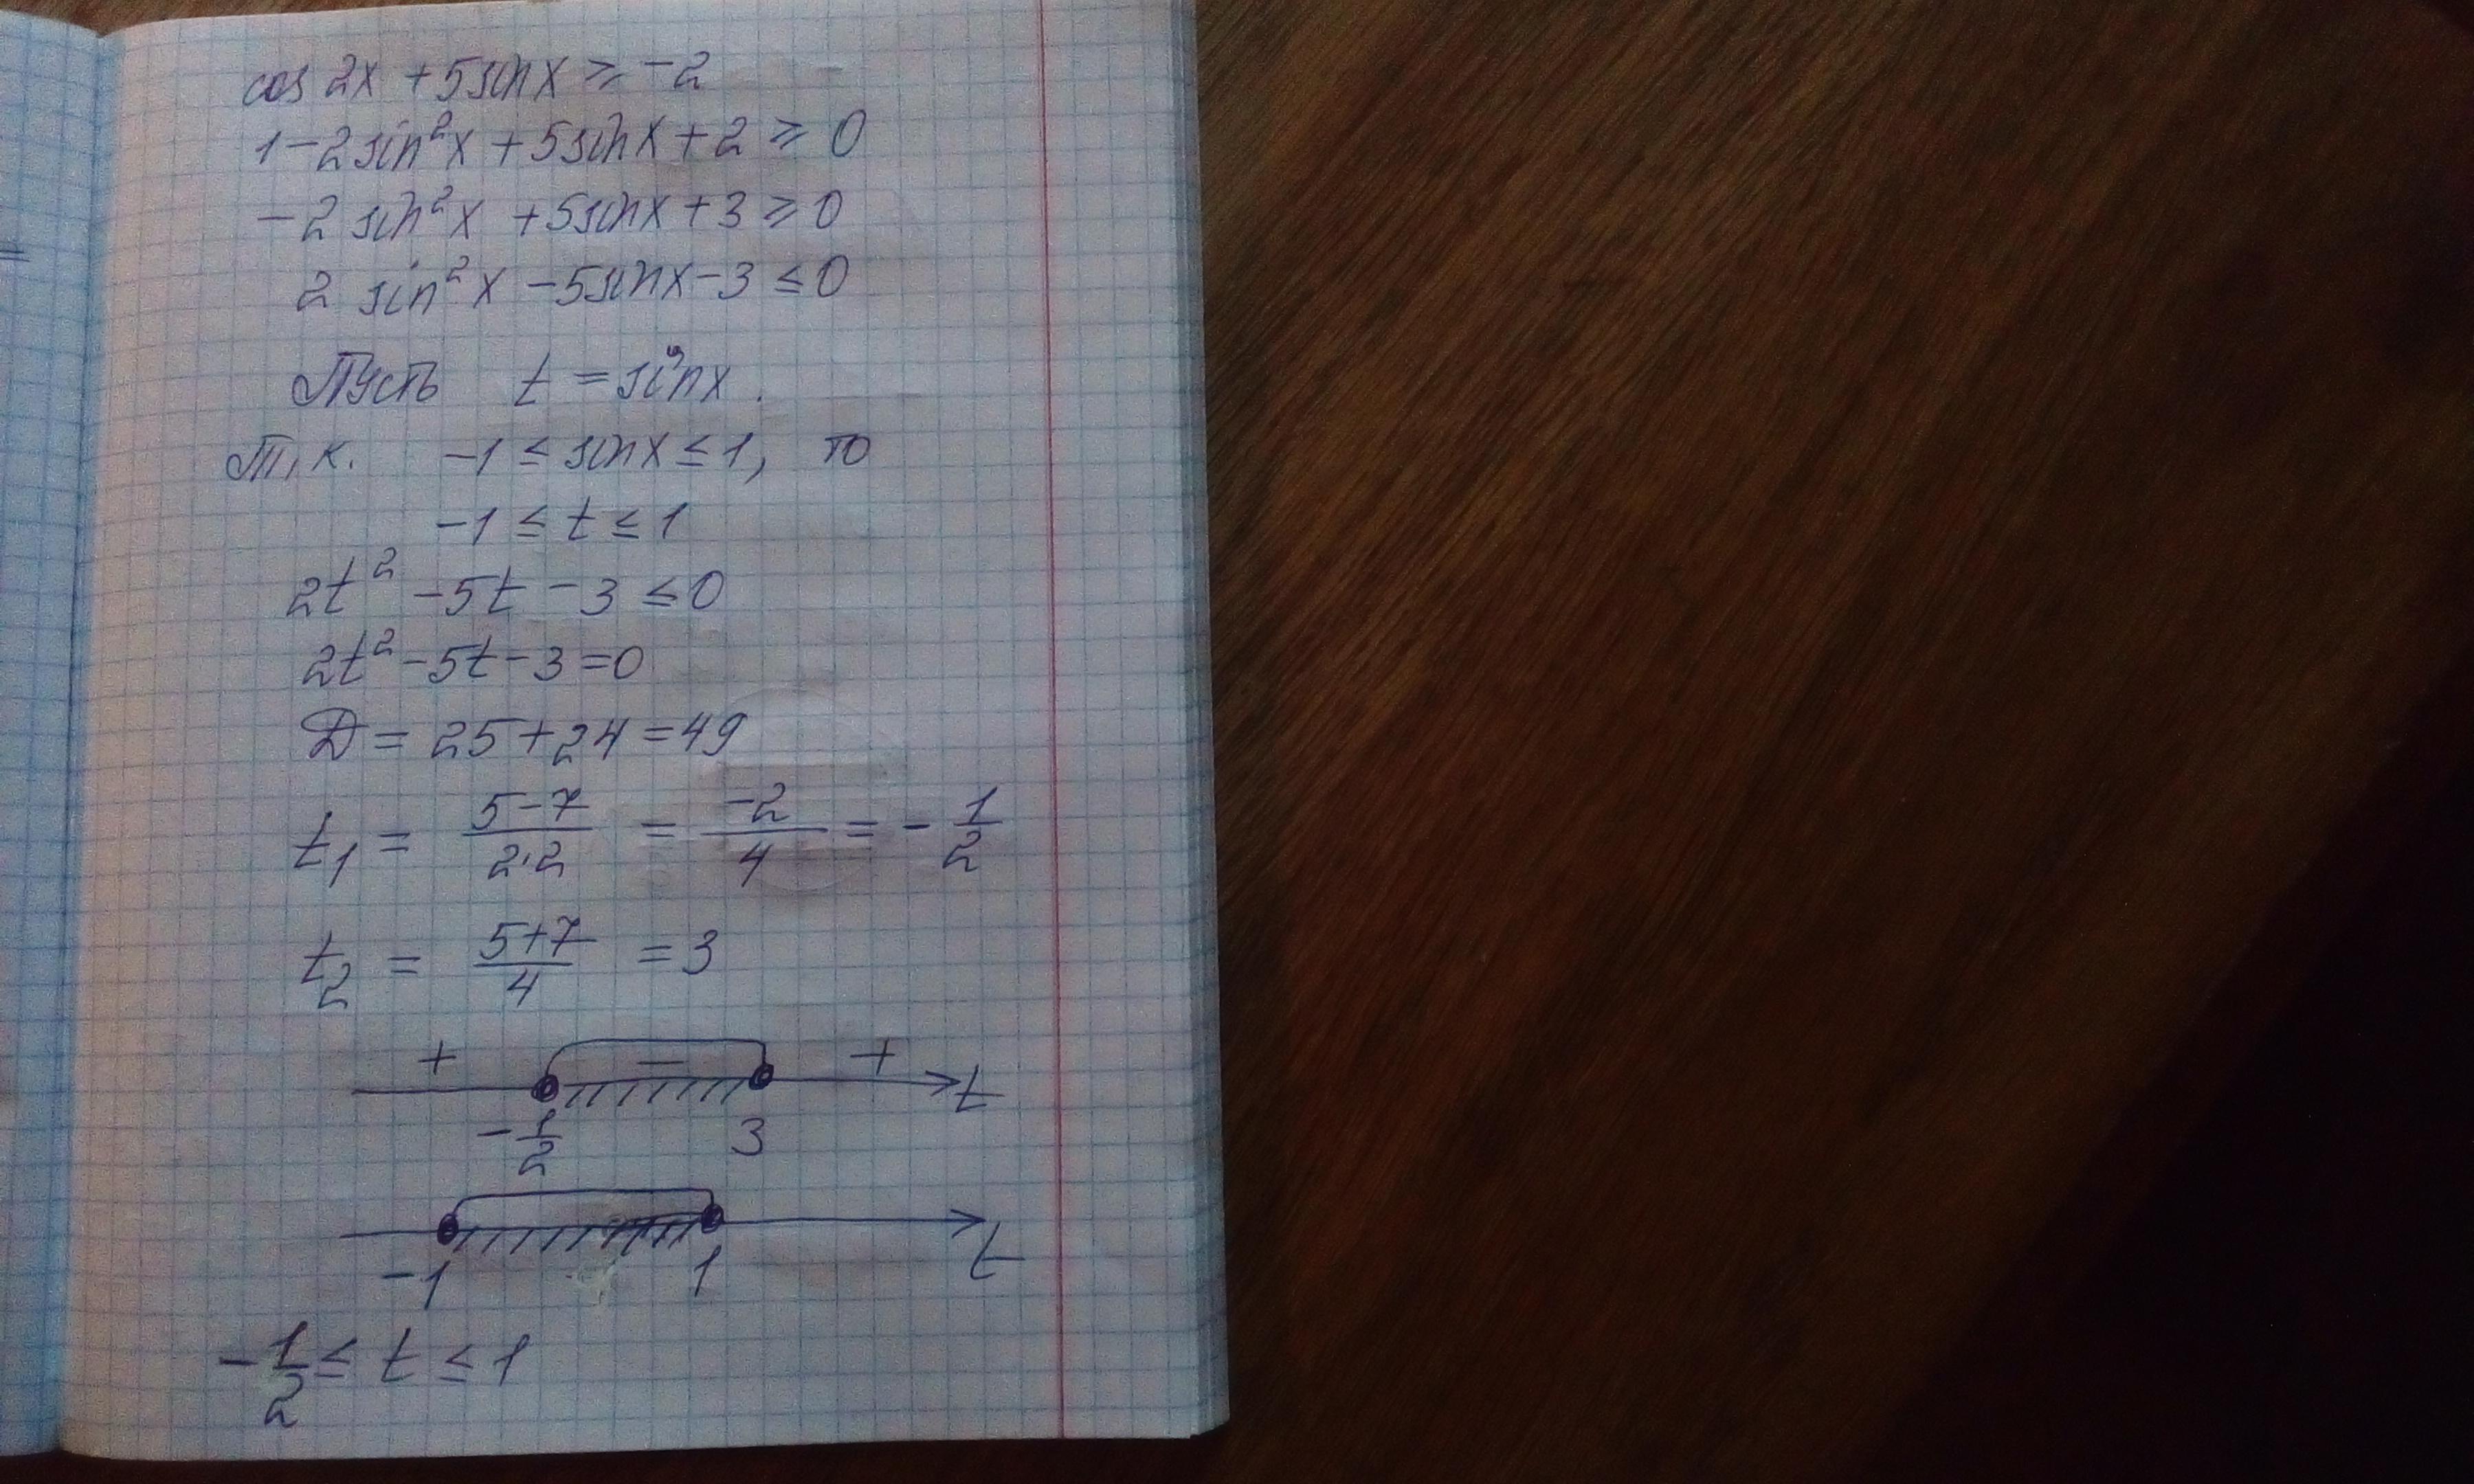 cos 2x + 5 sin x ≥ -2
1 - 2 sin² x + 5 sin x + 2 ≥ 0
-2 sin² x + 5 sin x + 3 ≥ 0
2 sin² x - 5 sin x - 3 ≤ 0
Пусть t = sin x.
Т.к. -1 ≤ sin x ≤ 1, то
-1 ≤ t ≤ 1
2t² - 5t - 3 ≤ 0
2t² - 5t - 3 = 0
Д = 25 + 24 = 49
t₁ = (5-7)/(2·2) = -2/4 = -1/2
t₂ = (5+7)/4 = 3
+ - + t
-1/2 3
t
-1 1
-1/2 ≤ t ≤ 1